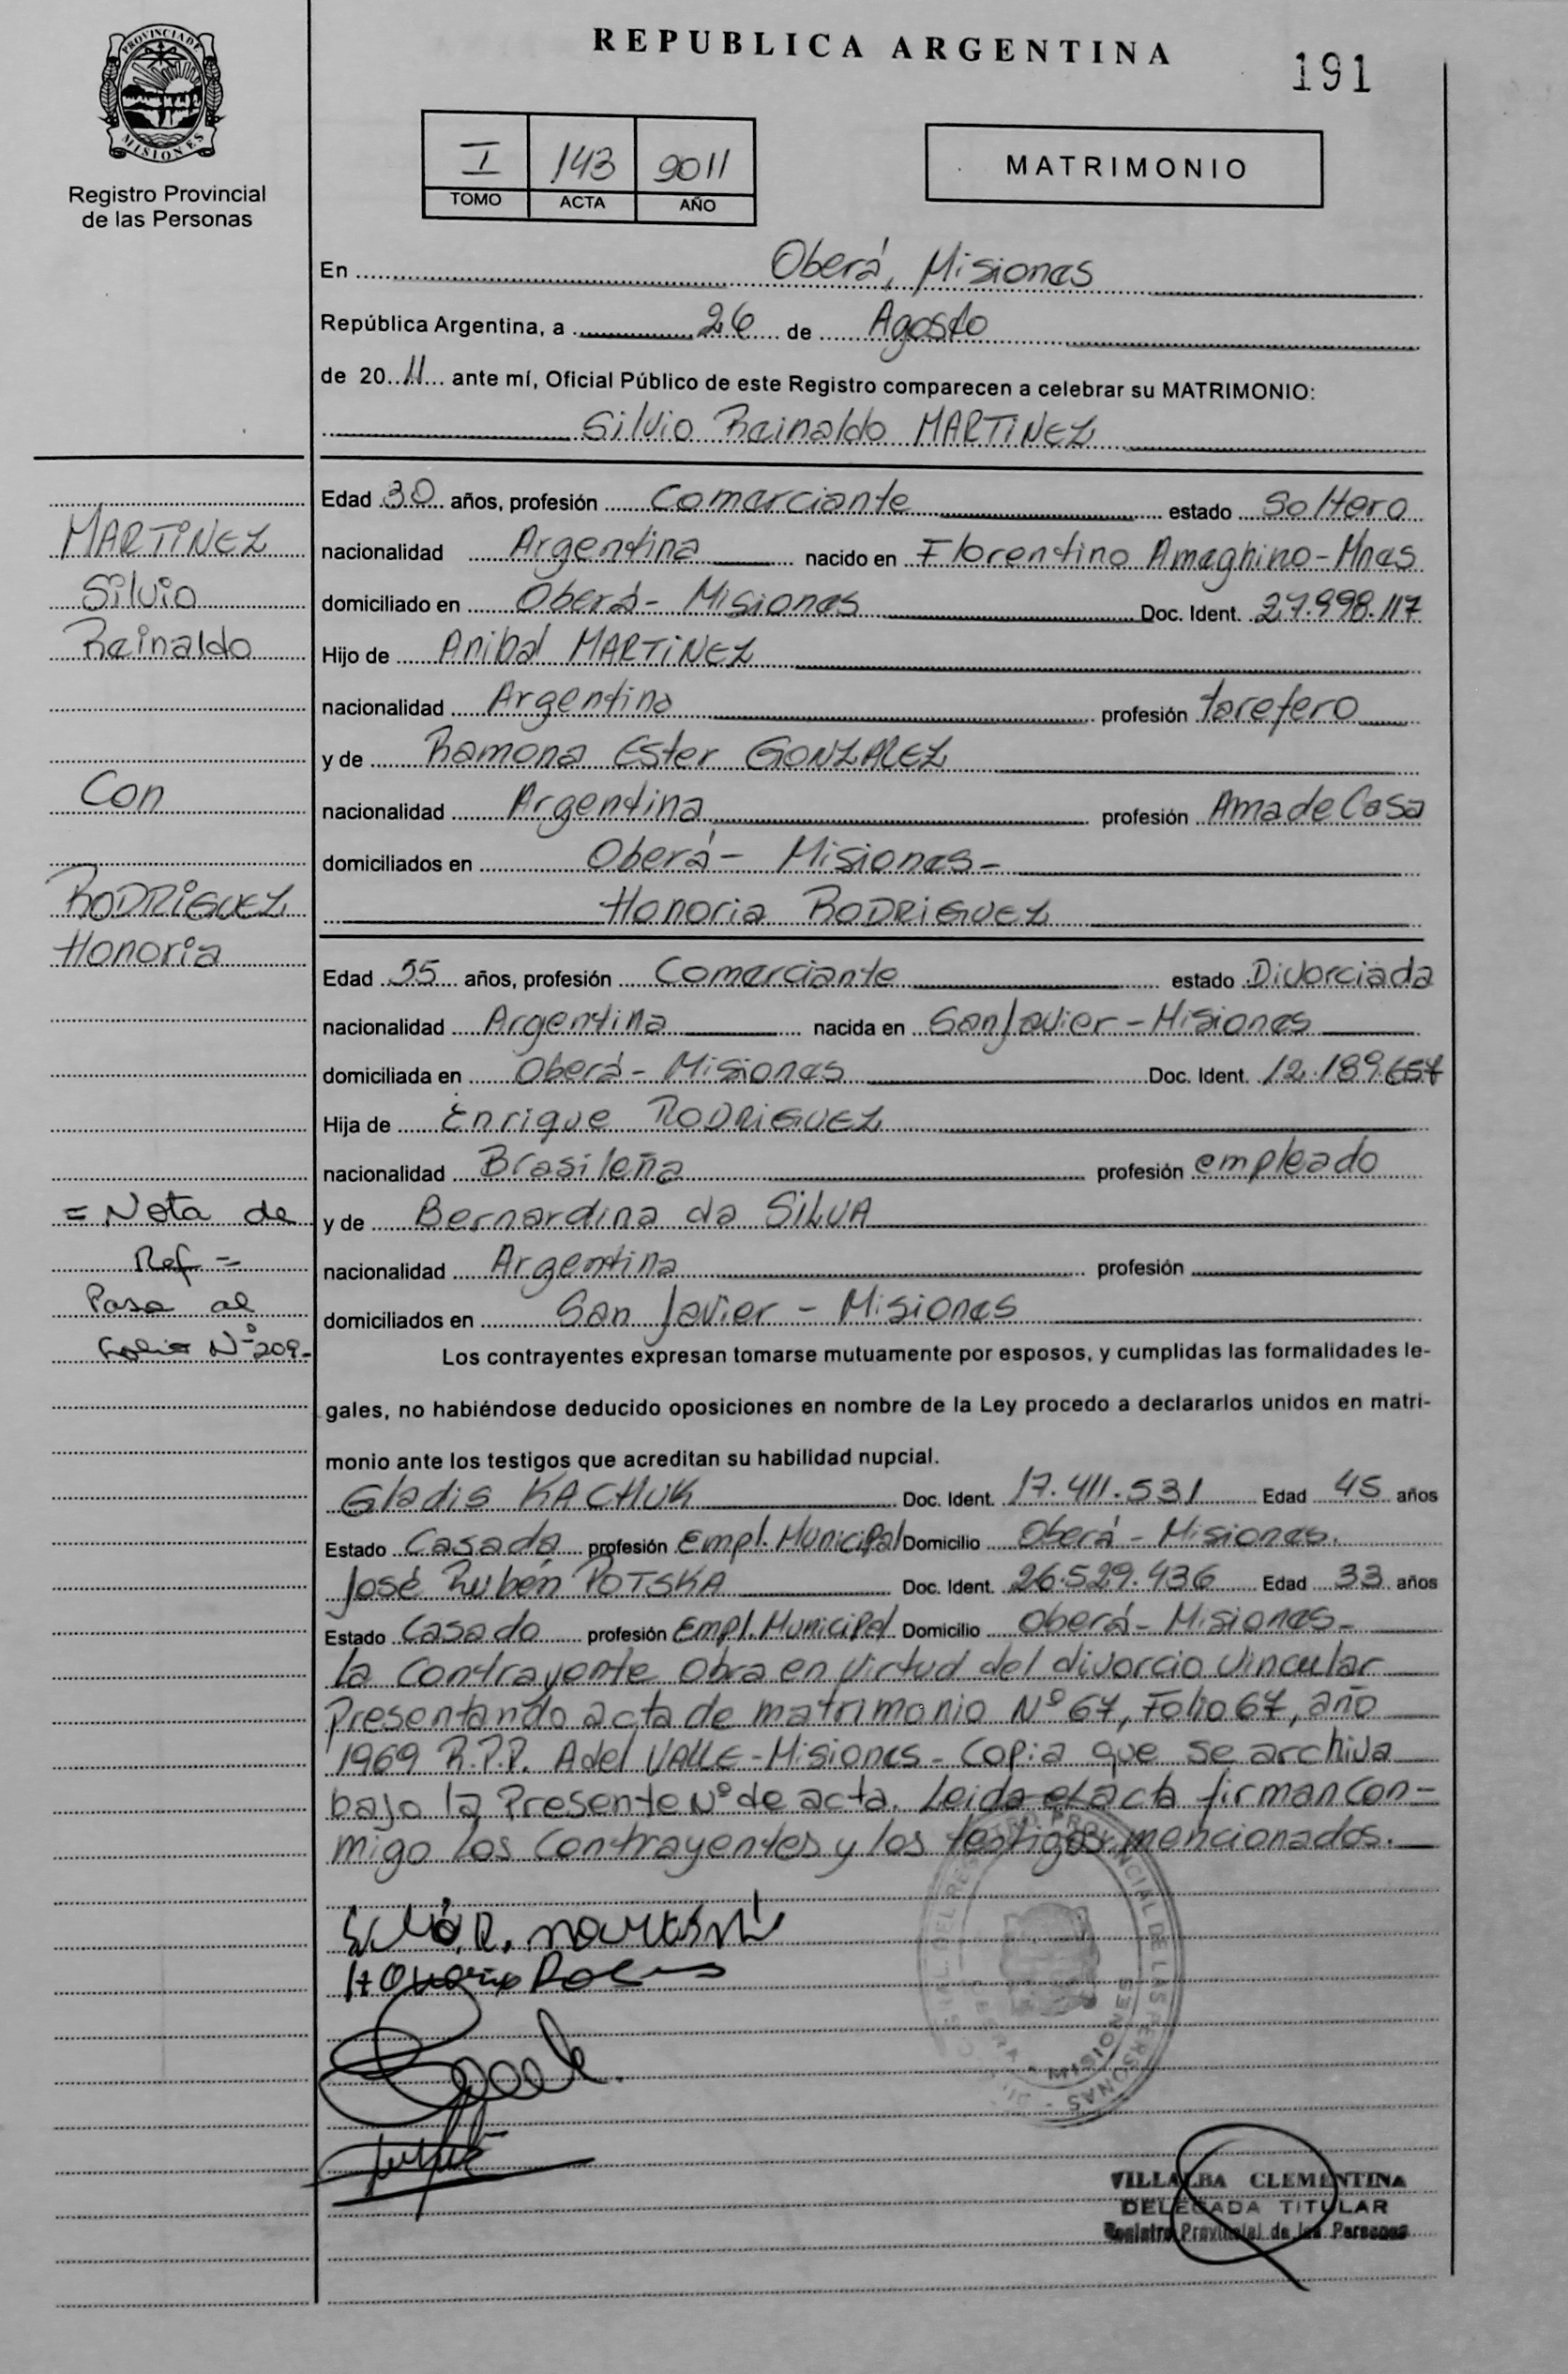 REPUBLICA ARGENTINA
191
PROVINCIA DE
MISIONES
Registro Provincial
de las Personas
I 143 9011
TOMO ACTA AÑO
MATRIMONIO
En Oberá, Misiones
República Argentina, a 26 de Agosto
de 2011 ante mí, Oficial Público de este Registro comparecen a celebrar su MATRIMONIO:
Silvio Reinaldo MARTINEZ
Edad 30 años, profesión Comerciante estado Soltero
nacionalidad Argentina nacido en Florentino Ameghino-Mnes
domiciliado en Oberá- Misiones Doc. Ident. 27.998.117
Hijo de Anibal MARTINEZ
nacionalidad Argentina profesión tarefero
y de Ramona Ester GONZALEZ
nacionalidad Argentina profesión Ama de Casa
domiciliados en Oberá- Misiones-
Honoria RODRIGUEZ
Edad 55 años, profesión Comerciante estado Divorciada
nacionalidad Argentina nacida en San Javier - Misiones
domiciliada en Oberá- Misiones Doc. Ident. 12.189.657
Hija de Enrique RODRIGUEZ
nacionalidad Brasileña profesión empleado
y de Bernardina da SILVA
nacionalidad Argentina profesión
domiciliados en San Javier - Misiones
Los contrayentes expresan tomarse mutuamente por esposos, y cumplidas las formalidades le-
gales, no habiéndose deducido oposiciones en nombre de la Ley procedo a declararlos unidos en matri-
monio ante los testigos que acreditan su habilidad nupcial.
Gladis KACHUK Doc. Ident. 17.411.531 Edad 45 años
Estado Casada profesión Empl. Municipal Domicilio Oberá - Misiones.
José Rubén POTSKA Doc. Ident. 26.529.436 Edad 33 años
Estado Casado profesión Empl. Municipal Domicilio Oberá- Misiones-
la Contrayente obra en virtud del divorcio Vincular
Presentando acta de matrimonio Nº 67, Folio 67, año
1969 R.P.P. A del VALLE-Misiones- Copia que se archiva
bajo la Presente Nº de acta. Leida el acta firman con-
migo los Contrayentes y los testigos mencionados.
MARTINEZ
Silvio
Reinaldo
Con
RODRIGUEZ
Honoria
= Nota de
Ref =
Pasa al
Folio Nº 209-
VILLALBA CLEMENTINA
DELEGADA TITULAR
Registro Provincial de las Personas